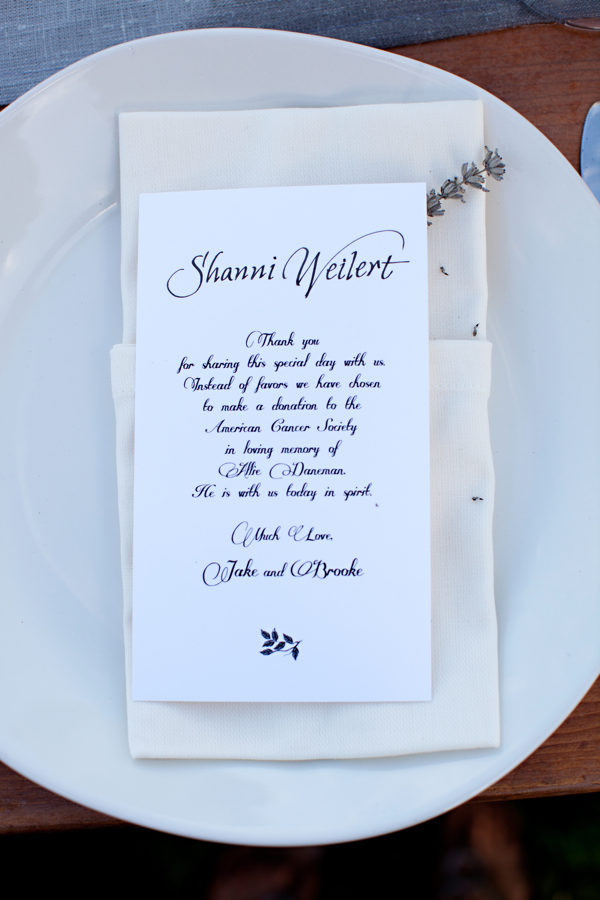 Shanni Weilert
Thank you
for sharing this special day with us.
Instead of favors we have chosen
to make a donation to the
American Cancer Society
in loving memory of
Daneman.
He is with us today in spirit.
Much Love,
Jake and Brooke